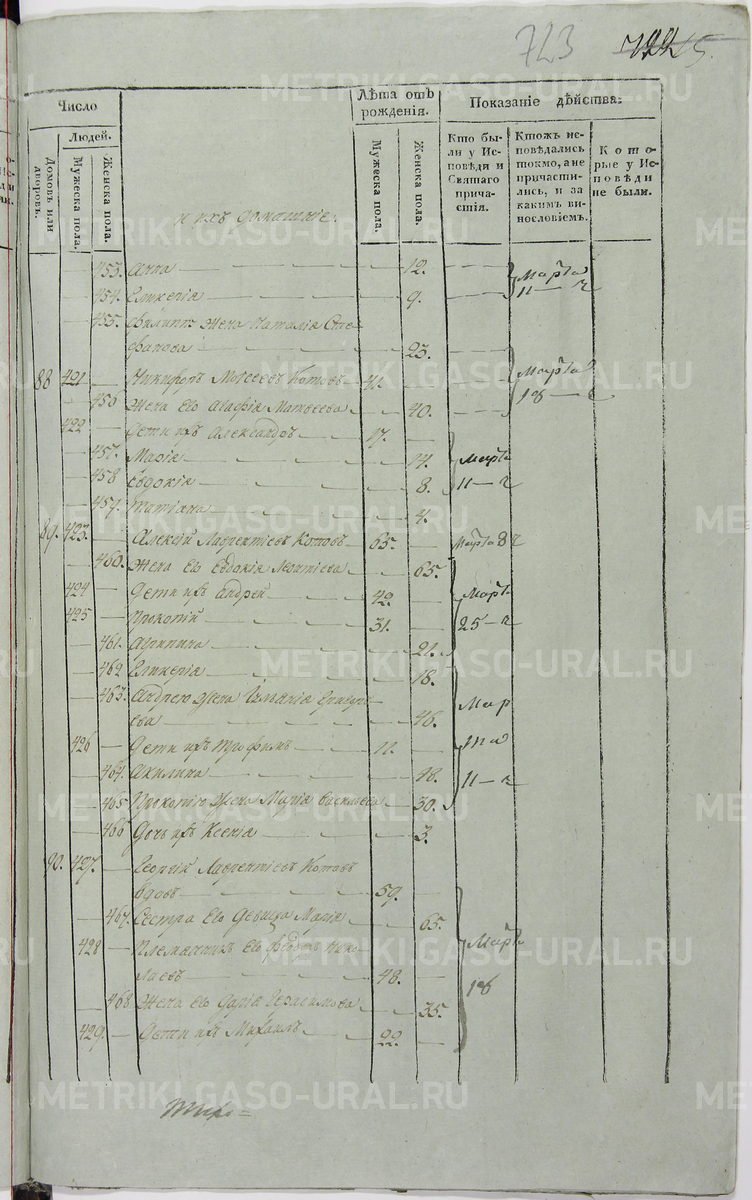 723
Число
Людей.
Домовъ или дворовъ.
Мужеска пола.
Женска пола.
и ихъ домашніе.
Лѣта отъ рожденія.
Мужеска пола.
Женска пола.
Показаніе дѣйства:
Кто бы-
ли у Ис-
повѣди и
Святаго
прича-
стія.
Ктожъ ис-
повѣдались
токмо, а не
причасти-
лись, и за
какимъ ви-
нословіемъ.
Кото-
рые у Ис-
повѣди
не были.
453. Анна 12.
454. Гликерія 9. Марта 11 — г
455. Филиппа жена Наталія Сте-
фанова 23.
88 421 Никифоръ Моѵсеевъ Котовъ 41. Марта
456 Жена его Агафія Матвеева 40. 18
422 Дети ихъ Александръ 17.
457. Марія 14. Марта
458 Евдокія 8. 11 — г
459. Татіана 4.
89. 423. Алексій Лаврентіевъ Котовъ 65. Марта 8 г
460. Жена его Евдокія Леонтіева 65.
424 Дети ихъ Андрей 42. Марта
425 Прокопій 31. 25 — г
461. Агрипина 21.
462 Гликерія 18.
463. Андрею жена
ева 46. Мар
426 Дети ихъ Трофимъ 11. та
464. Акилина 18. 11 — г
465 Прокопію жена Марія Васильева 30.
466 Дочь ихъ Ксенія 3.
90. 427. Георгій Лаврентіевъ Котовъ
вдовъ 59.
467. Сестра его девица Марія 65.
428 Племянникъ его Федотъ Нико- Марта
лаевъ 48. 18
468 Жена его Дарія Герасимова 35.
429. Дети ихъ Михаилъ 22.
METRIKI.GASO-URAL.RU